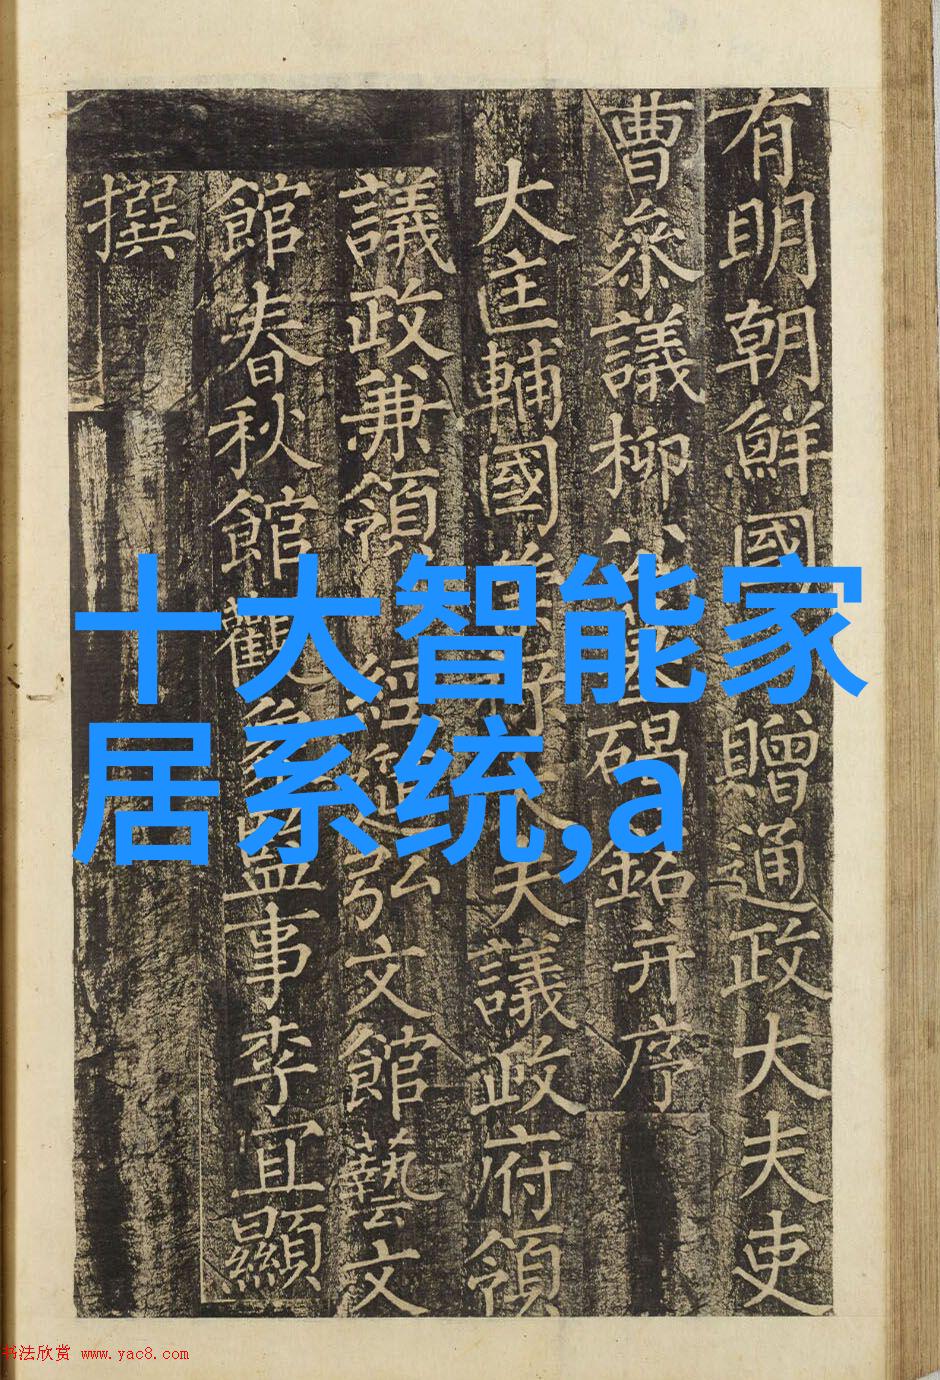 有明朝鮮國贈通政大夫吏
曹參議柳公墓碣銘并序
大匡輔國崇祿大夫議政府領
議政兼領經筵弘文館藝文
館春秋館觀象監事李宜顯
撰
十大智能家
居系统,a
书法欣赏 www.yac8.com